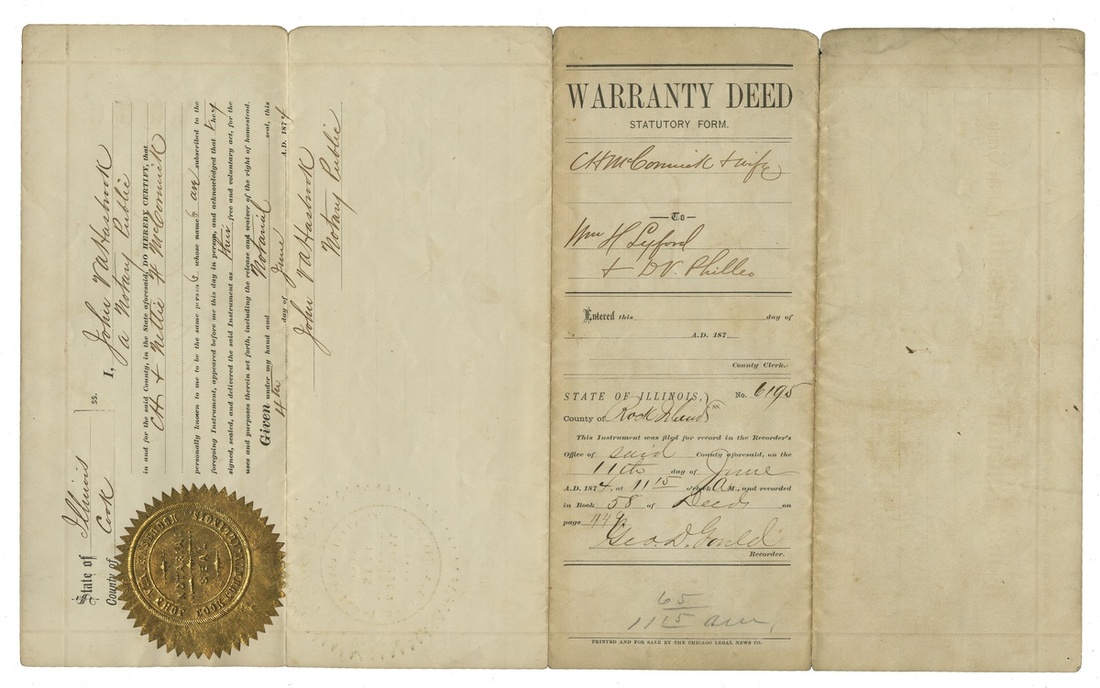 State of Illinois
County of Cook } ss.
I, John V A Hasbrook
a Notary Public
in and for the said County, in the State aforesaid, DO HEREBY CERTIFY, that
CH & Nettie F McCormick
personally known to me to be the same persons whose names are subscribed to the
foregoing Instrument, appeared before me this day in person, and acknowledged that they
signed, sealed, and delivered the said Instrument as their free and voluntary act, for the
uses and purposes therein set forth, including the release and waiver of the right of homestead.
Given under my hand and Notarial seal, this
4th day of June A.D. 1874
John V A Hasbrook
Notary Public
NOTARIAL
SEAL
COOK COUNTY
WARRANTY DEED
STATUTORY FORM.
CH McCormick & wife
To
Wm H Lyford
& D.V. Philleo
Entered this day of
A.D. 187
County Clerk.
STATE OF ILLINOIS, No. 6195
County of Rock Island ss
This Instrument was filed for record in the Recorder's
Office of said County aforesaid, on the
11th day of June
A.D. 1874 at 11 15 o'clock A M., and recorded
in Book 58 of Deeds on
page 449
Geo. D. Gould
Recorder.
65
11 15 am,
PRINTED AND FOR SALE BY THE CHICAGO LEGAL NEWS CO.